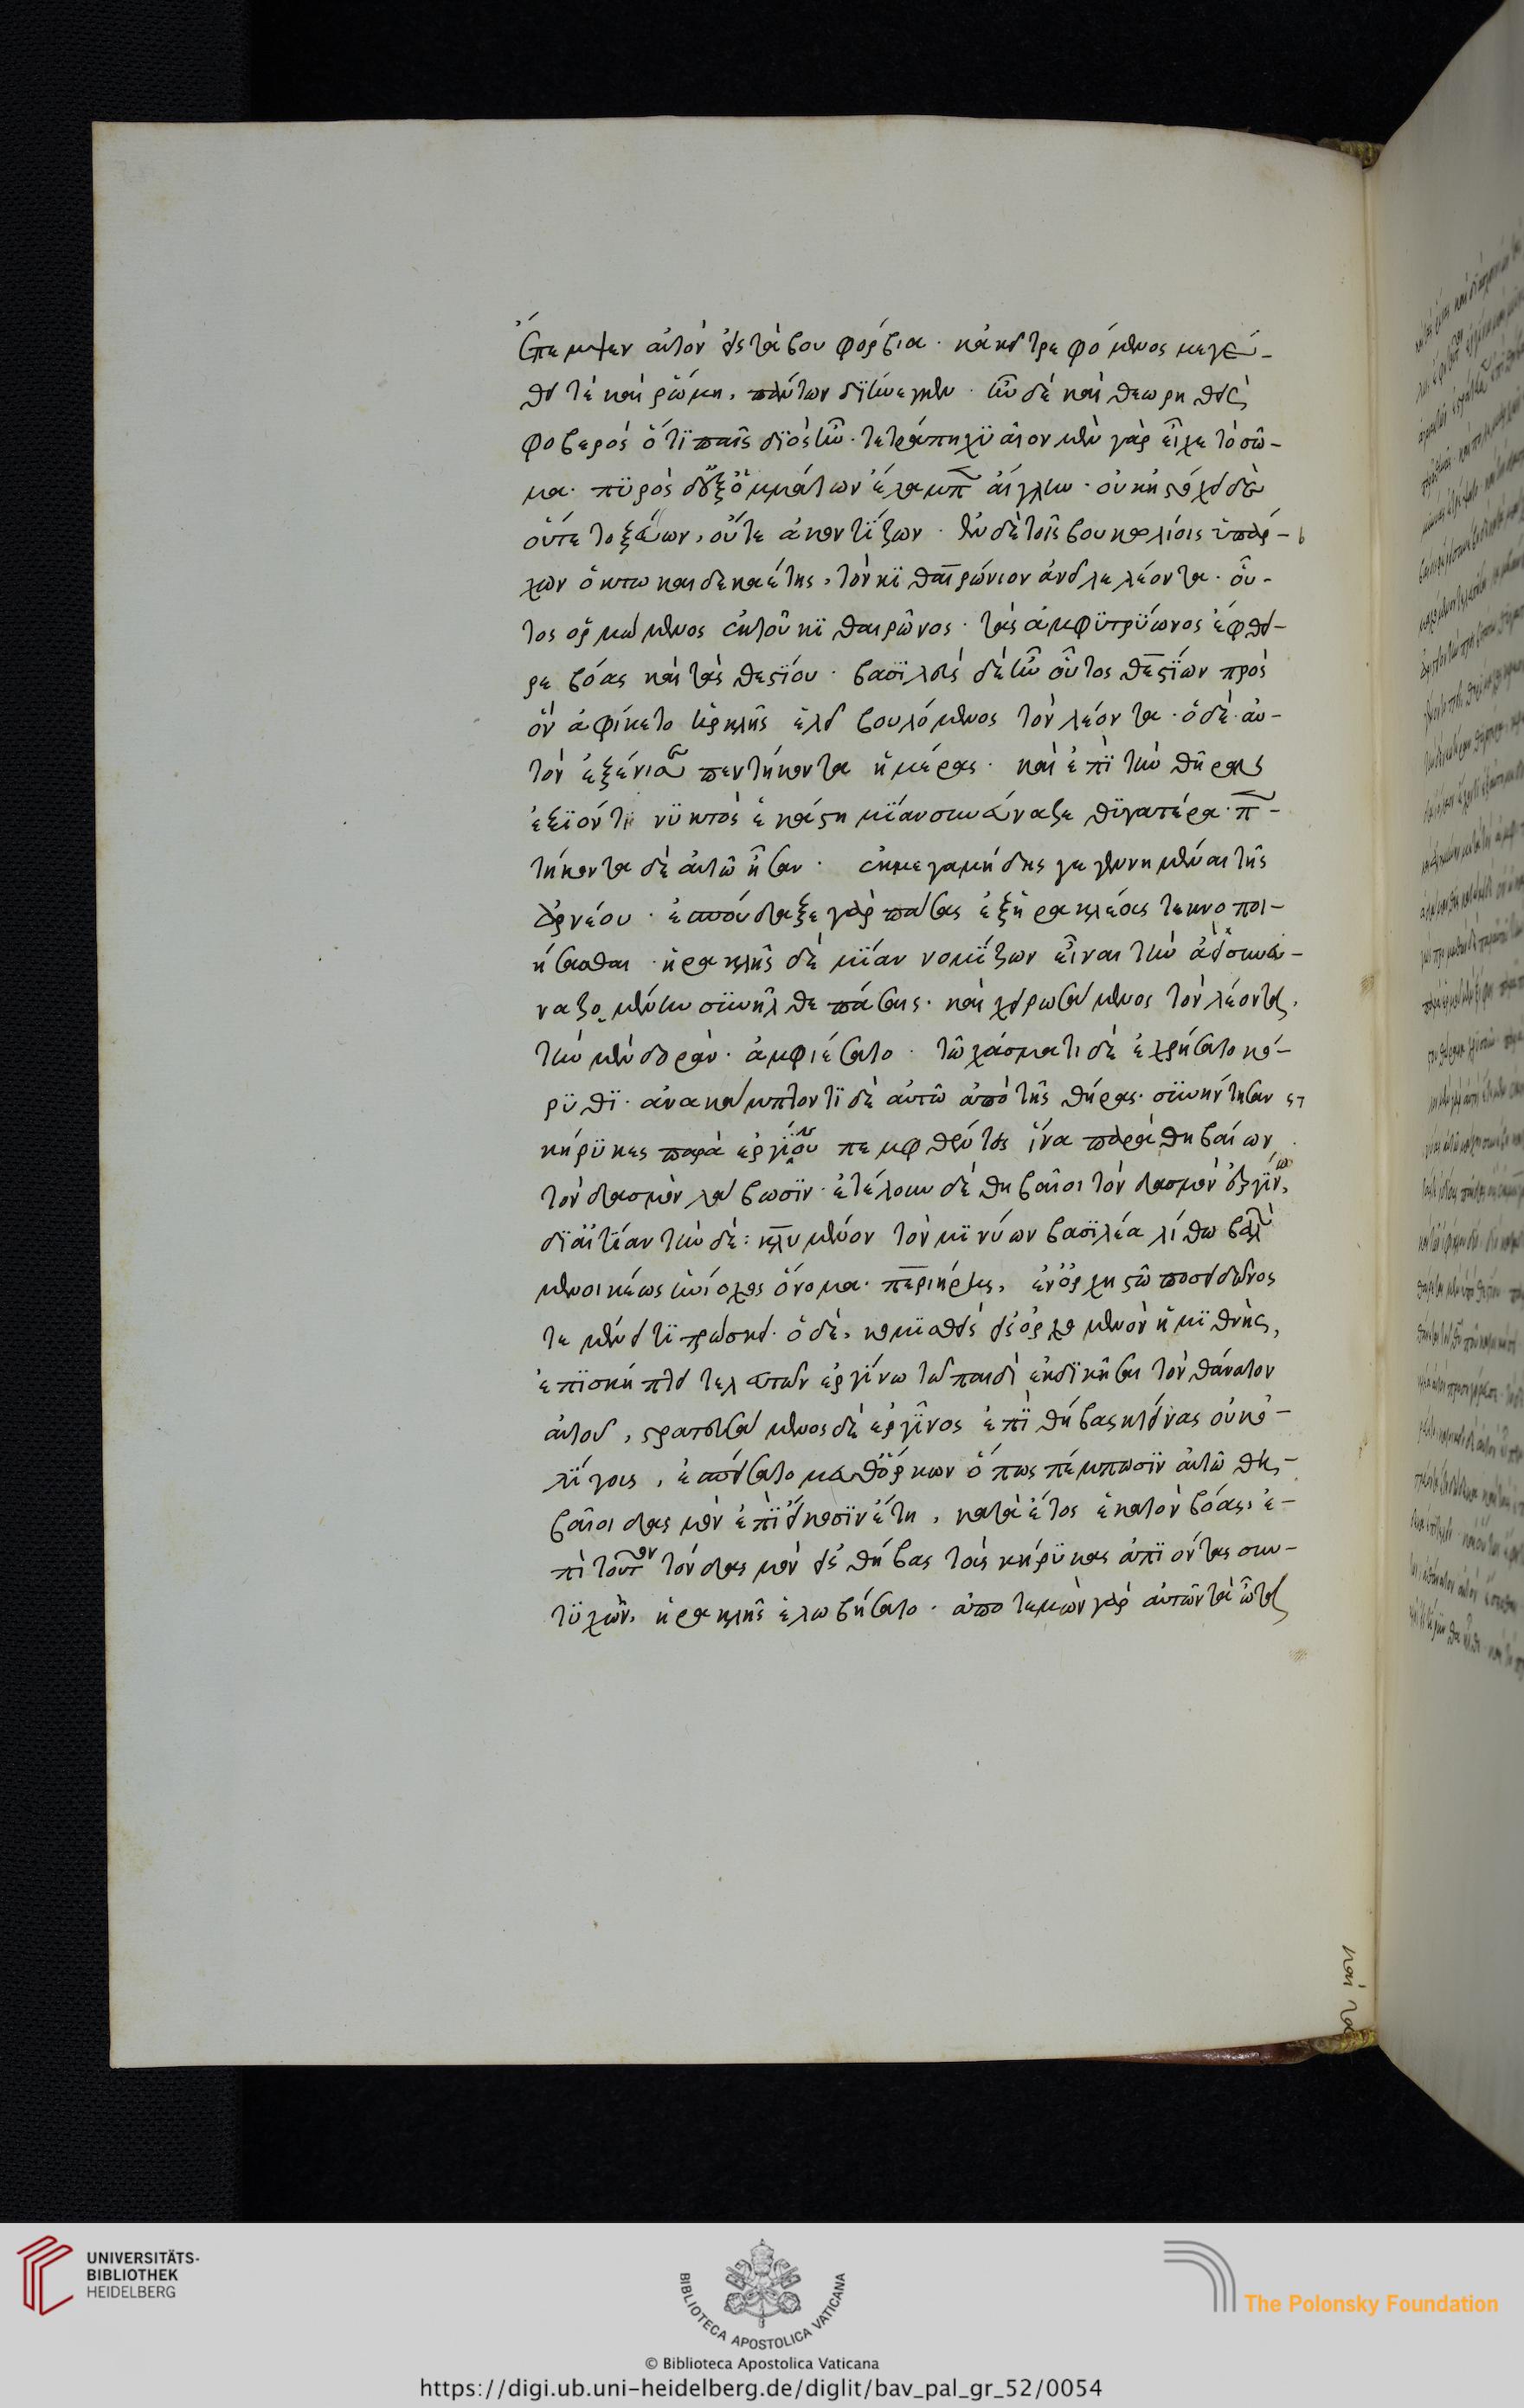 ἔπεμψεν αὐτὸν εἰς τὰ βουφόρβια· κἀκεῖ τρεφόμενος μεγέ-
θει τὲ καὶ ῥώμη, πάντων διήνεγκεν· ἦν δὲ καὶ θεωρηθεὶς
φοβερὸς ὅτι παῖς διὸς ἦν· τετραπηχυαῖον μὲν γὰρ εἶχε τὸ σῶ-
μα· πυρὸς δ' ἐξ ὀμμάτων ἔλαμπεν αἴγλην· οὐκ ἠστόχει δὲ
οὔτε τοξεύων, οὔτε ἀκοντίζων· ἐν δὲ τοῖς βουκολίοις ὑπάρ-
χων ὀκτωκαιδεκαέτης, τὸν κιθαιρώνιον ἀνεῖλε λέοντα· οὗ-
τος ὁρμώμενος ἐκ τοῦ κιθαιρῶνος· τὰς ἀμφιτρύωνος ἔφθει-
ρε βόας καὶ τὰς θεστίου· βασιλεὺς δὲ ἦν οὗτος θεσπιῶν πρὸς
ὃν ἀφίκετο ἡρακλῆς ἑλεῖν βουλόμενος τὸν λέοντα· ὁ δὲ αὐ-
τὸν ἐξένισε πεντήκοντα ἡμέρας· καὶ ἐπὶ τὴν θήραν
ἐξιόντι νυκτὸς ἑκάστη μίαν συνεύναζε θυγατέρα· πεν-
τήκοντα δὲ αὐτῶ ἦσαν· ἐκ μεγαμήδης γεγεννημέναι τῆς
ἀρνέου· ἐσπούδαζε γὰρ πάσας ἐξ ἡρακλέους τεκνοποι-
ήσασθαι· ἡρακλῆς δὲ μίαν νομίζων εἶναι τὴν ἀεὶ συνευ-
ναζομένην συνῆλθε πάσαις· καὶ χειρωσάμενος τὸν λέοντα,
τὴν μὲν δορὰν· ἀμφιέσατο· τῶ χάσματι δὲ ἐχρήσατο κό-
ρυθι· ἀνακάμπτοντι δὲ αὐτῶ ἀπὸ τῆς θήρας· συνήντησαν
κήρυκες παρὰ ἐργίνου πεμφθέντες ἵνα παρὰ θηβαίων
τὸν δασμὸν λάβωσιν· ἐτέλουν δὲ θηβαῖοι τὸν δασμὸν ἐργίνω,
δι' αἰτίαν τὴνδε: κλύμενον τὸν μινύων βασιλέα λίθω βαλὼν
μενοικέως ἡνίοχος ὄνομα· περιήρης, ἐν ὀγχηστῶ ποσειδῶνος
τεμένει τιτρώσκει· ὁ δὲ, κομισθεὶς εἰς ὀρχομενὸν ἡμιθνὴς,
ἐπισκήπτει τελευτῶν ἐργίνω τῶ παιδὶ ἐκδικῆσαι τὸν θάνατον
αὐτοῦ, στρατευσάμενος δὲ ἐργῖνος ἐπὶ θήβας κτείνας οὐκ ὀ-
λίγους, ἐσπείσατο μεθ' ὅρκων ὅπως πέμπωσιν αὐτῶ θη-
βαῖοι δασμὸν ἐπὶ εἴκοσιν ἔτη, κατὰ ἔτος ἑκατὸν βόας, ἐ-
πὶ τοῦτον τὸν δασμὸν εἰς θήβας τοὺς κήρυκας ἀπιόντας συν-
τυχὼν, ἡρακλῆς ἐλωβήσατο· ἀποτεμὼν γὰρ αὐτῶν τὰ ὦτα
καὶ τὰς
UNIVERSITÄTS-
BIBLIOTHEK
HEIDELBERG
BIBLIOTECA APOSTOLICA VATICANA
The Polonsky Foundation
© Biblioteca Apostolica Vaticana
https://digi.ub.uni-heidelberg.de/diglit/bav_pal_gr_52/0054